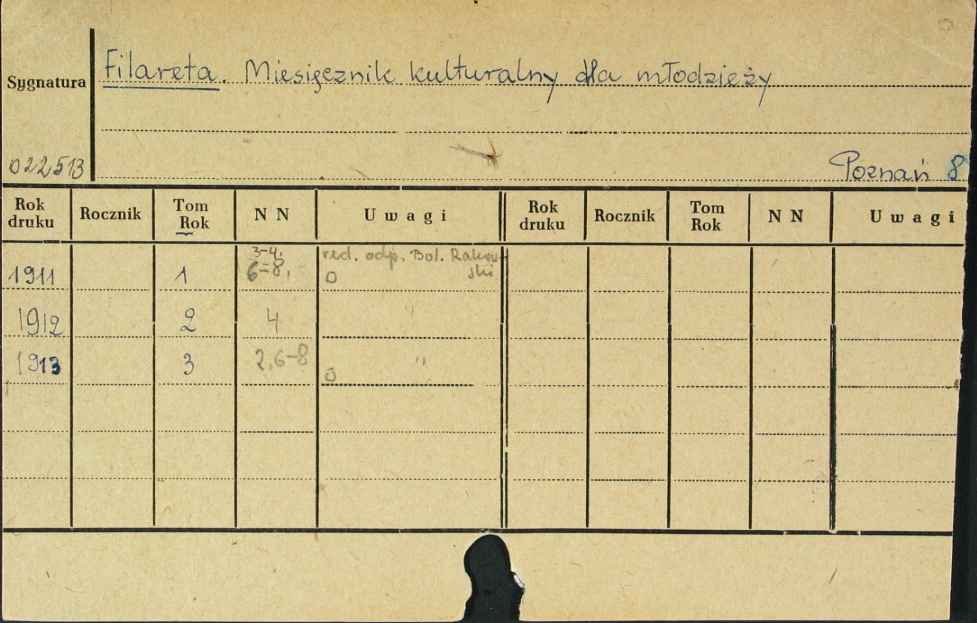 Filareta. Miesięcznik kulturalny dla młodzieży
Sygnatura
022513
Poznań 8
Rok druku Rocznik Tom Rok N N Uwagi Rok druku Rocznik Tom Rok N N Uwagi
1911 1 3-4, 6-8, red. odp. Bol. Rakowski
0
1912 2 4 "
1913 3 2,6-8 "
0